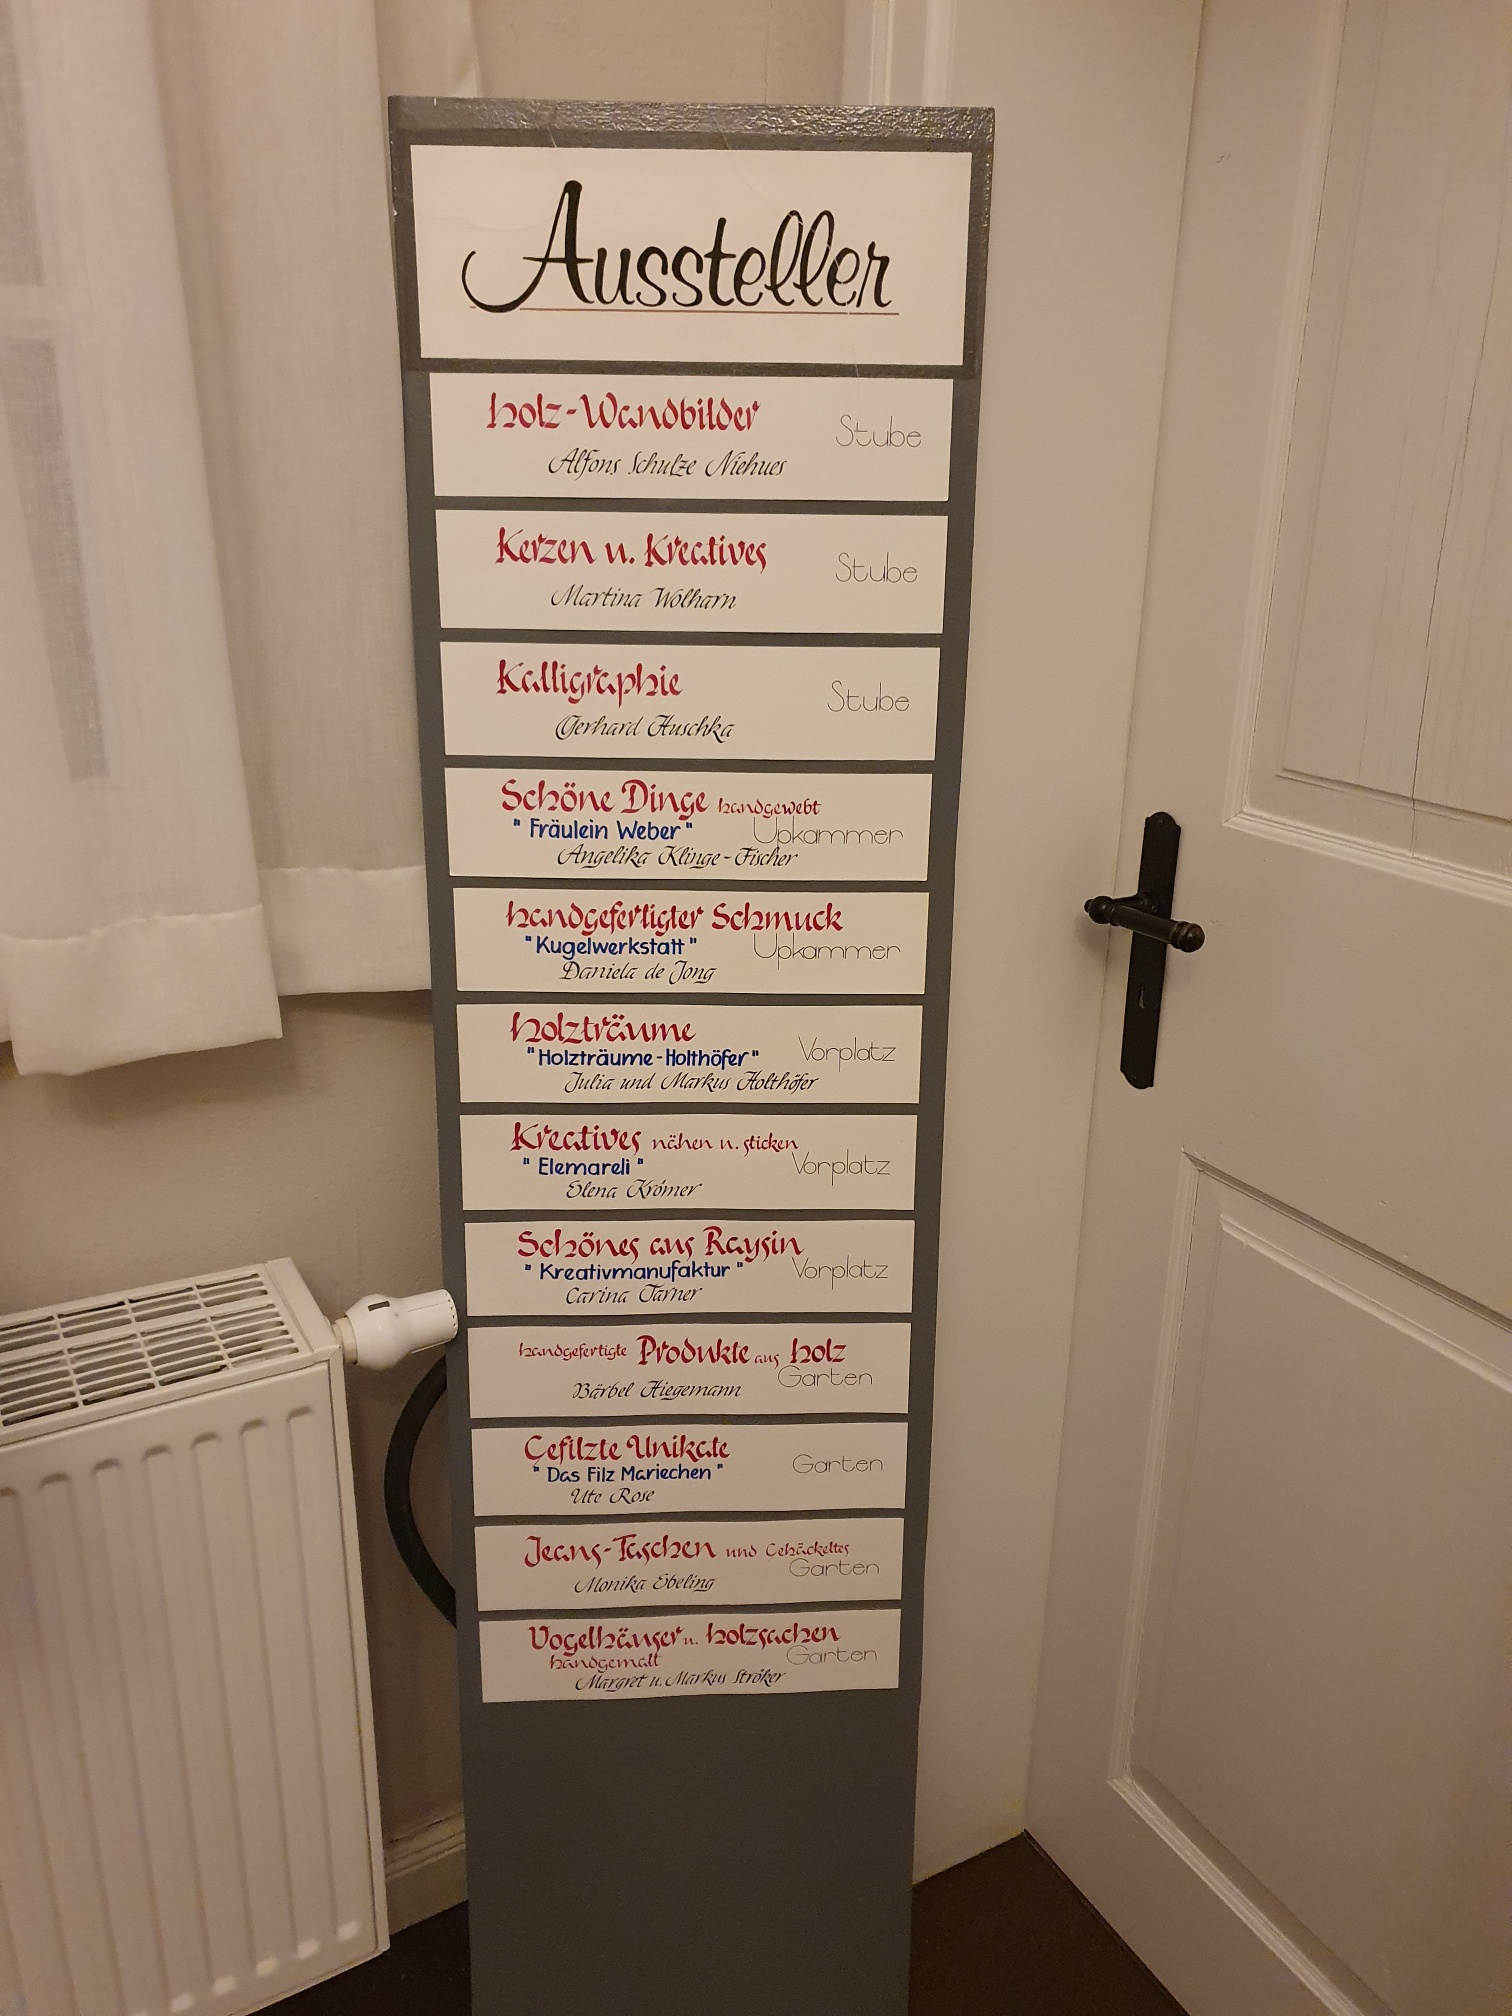 Aussteller
Holz-Wandbilder
Stube
Alfons Schulze Niehues
Kerzen u. Kreatives
Stube
Martina Wolharn
Kalligraphie
Stube
Gerhard Huschka
Schöne Dinge handgewebt
"Fräulein Weber"
Upkammer
Angelika Klinge-Fischer
handgefertigter Schmuck
"Kugelwerkstatt"
Upkammer
Daniela de Jong
Holzträume
"Holzträume-Holthöfer"
Vorplatz
Julia und Markus Holthöfer
Kreatives nähen u. sticken
"Elemareli"
Vorplatz
Elena Krömer
Schönes aus Raysin
"Kreativmanufaktur"
Vorplatz
Carina Tarner
handgefertigte Produkte aus Holz
Garten
Bärbel Hiegemann
Gefilzte Unikate
"Das Filz Mariechen"
Garten
Ute Rose
Jeans-Taschen und Gehäckeltes
Garten
Monika Ebeling
Vogelhäuser u. Holzsachen
handgemalt
Garten
Margret u. Markus Ströker